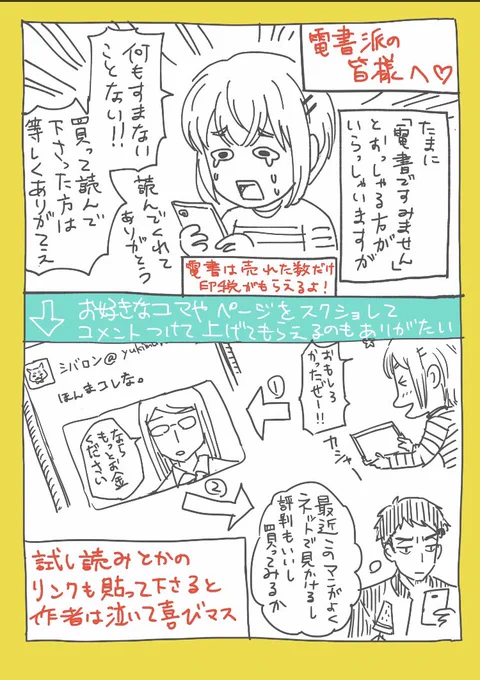 電書派の
皆様へ♡
たまに
「電書ですみません」
とおっしゃる方が
いらっしゃいますが
何もすまない
ことない!!
読んでくれて
ありがとう
買って読んで
下さった方は
等しくありがてえ
電書は売れた数だけ
印税がもらえるよ!
お好きなコマやページをスクショして
コメントつけて上げてもらえるのもありがたい
おもしろ
かったぜー!!
カシャ
①
シバロン@yukimo
ほんまコレな。
なら
もっとお金
ください
②
最近このマンガよく
ネットで見かけるし
評判もいいし
買ってみるか
試し読みとかの
リンクも貼って下さると
作者は泣いて喜びマス